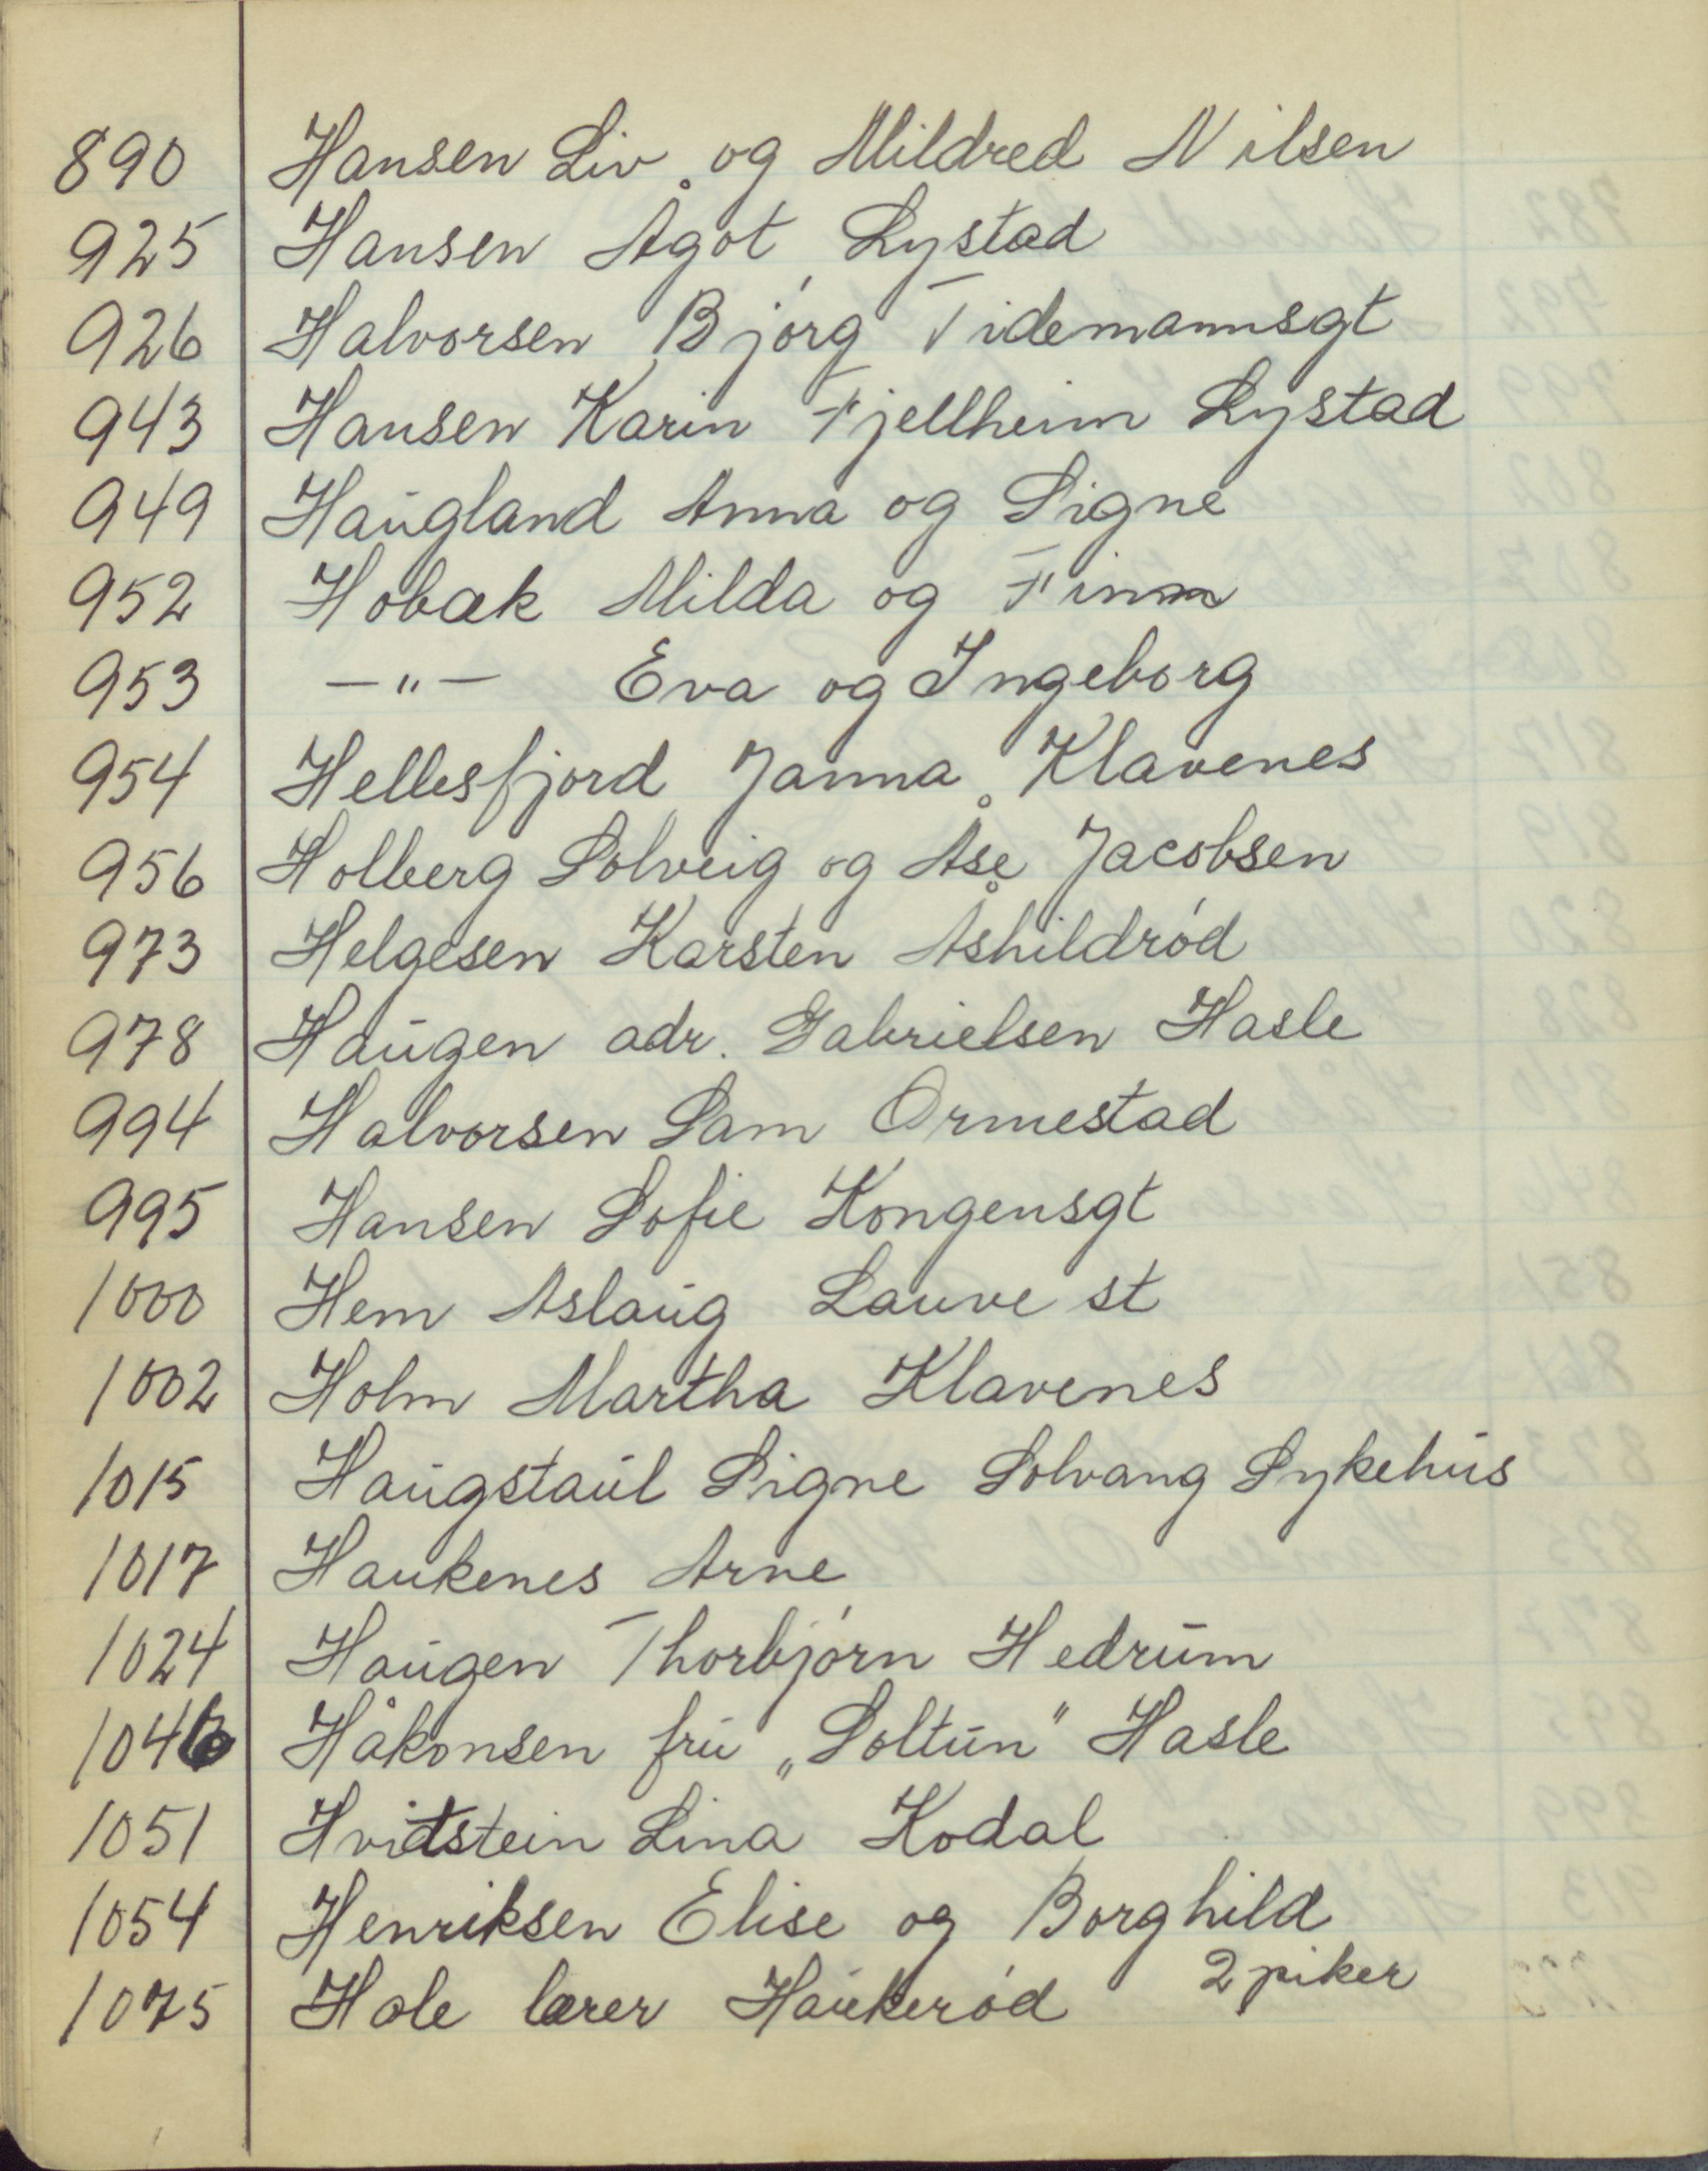 890 Hansen Liv og Mildred Nilsen
925 Hansen Ågot Lystad
926 Halvorsen Bjórg Tidemannsgt
943 Hansen Karin Fjellheim Lystad
949 Haugland Anna og Signe
952 Hobæk Milda og Finn
953 —"— Eva og Ingeborg
954 Hellesfjord Janna Klavenes
956 Holberg Solveig og Åse Jacobsen
973 Helgesen Karsten Åshildród
978 Haugen adr. Gabrielsen Hasle
994 Halvorsen Sam Ormestad
995 Hansen Sofie Kongensgt
1000 Hem Aslaug Lauve st
1002 Holm Martha Klavenes
1015 Haugstaul Signe Solvang Sykehus
1017 Haukenes Arne
1024 Haugen Thorbjórn Hedrum
1046 Håkonsen fru „Soltun" Hasle
1051 Hvidtstein Lina Kodal
1054 Henriksen Elise og Borghild
2 piker
1075 Hole lærer Haukeród